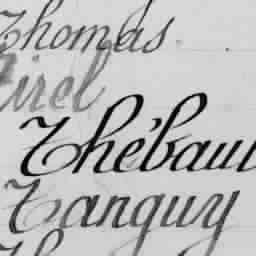 Thomas
Tirel
Thébau
Tanguy